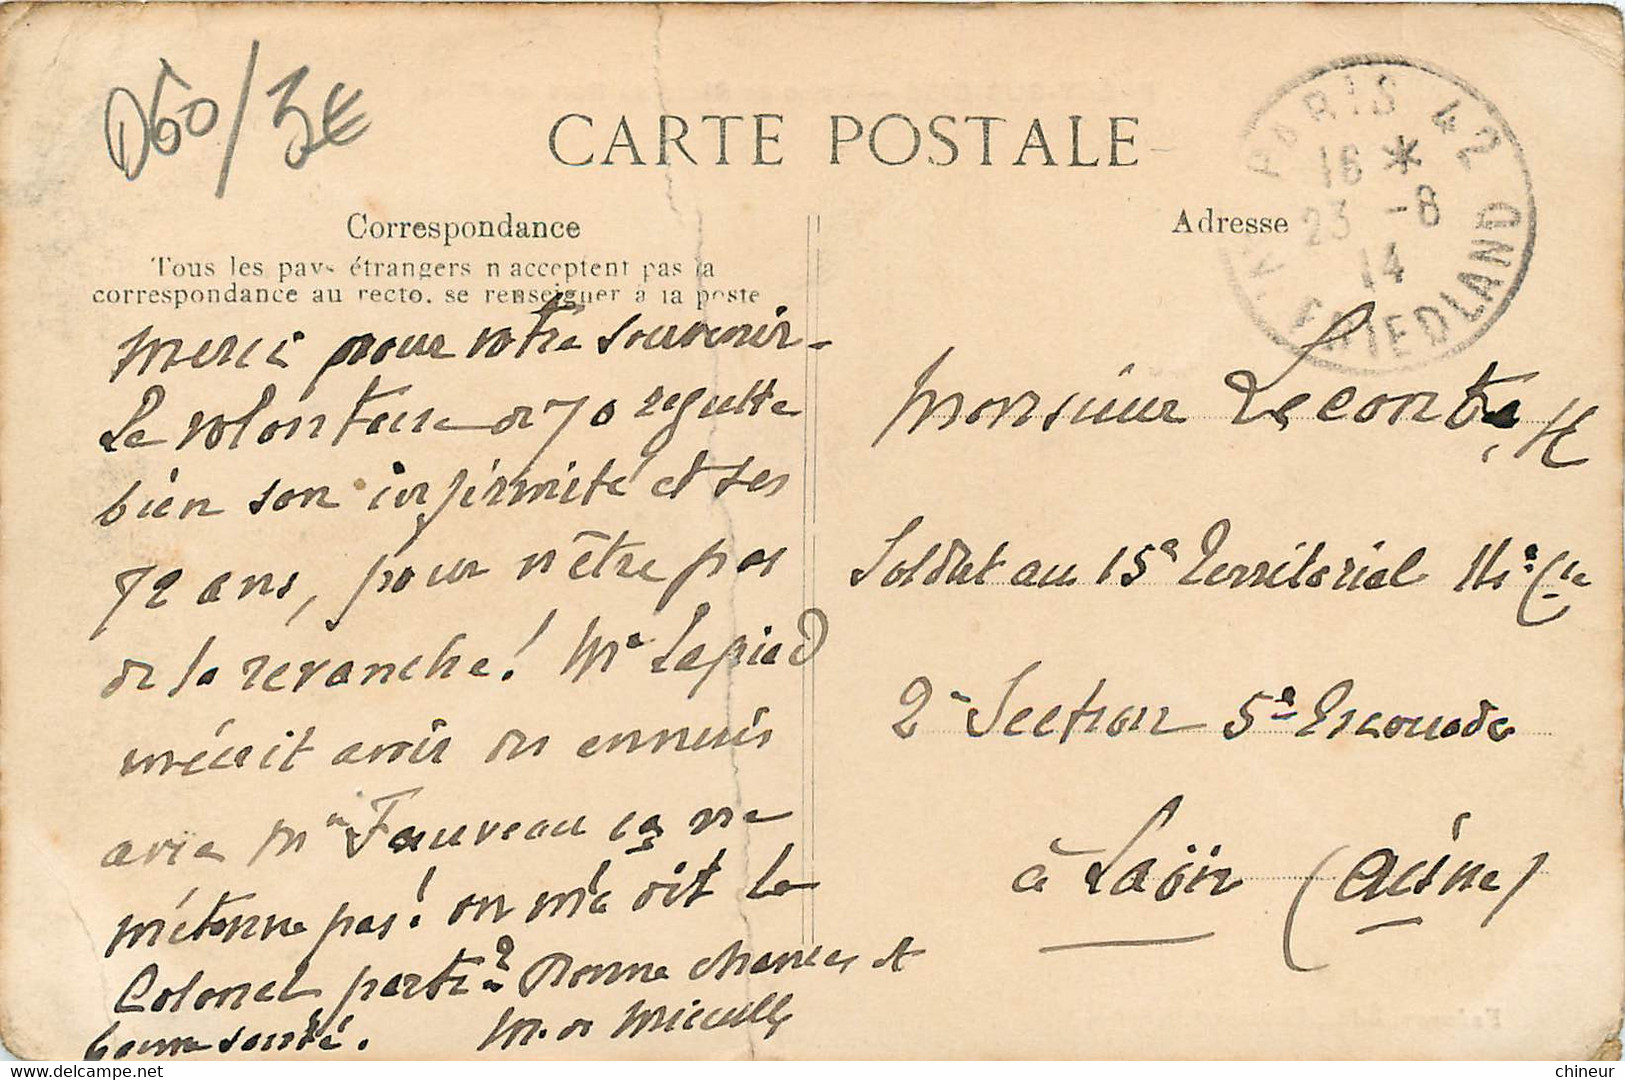 D60/3€
CARTE POSTALE
Correspondance
Tous les pays étrangers n'acceptent pas la
correspondance au recto, se renseigner à la poste
Merci pour votre souvenir.
Le volontaire de 70 regrette
bien son infirmité et ses
72 ans, pour n'être pas
de la revanche! Mr Lapied
m'écrit avoir des ennuis
avec Mr Fauveau ça ne
m'étonne pas! on m'a dit le
Colonel parti? Bonne chance et
bonne santé. M. de
PARIS 42
16 *
23 -8
14
AV. FRIEDLAND
Adresse
Monsieur Leconte, H
Soldat au 15e Territorial 11e Cie
2e Section 5e Escouade
à Laön (Aisne)
chineur